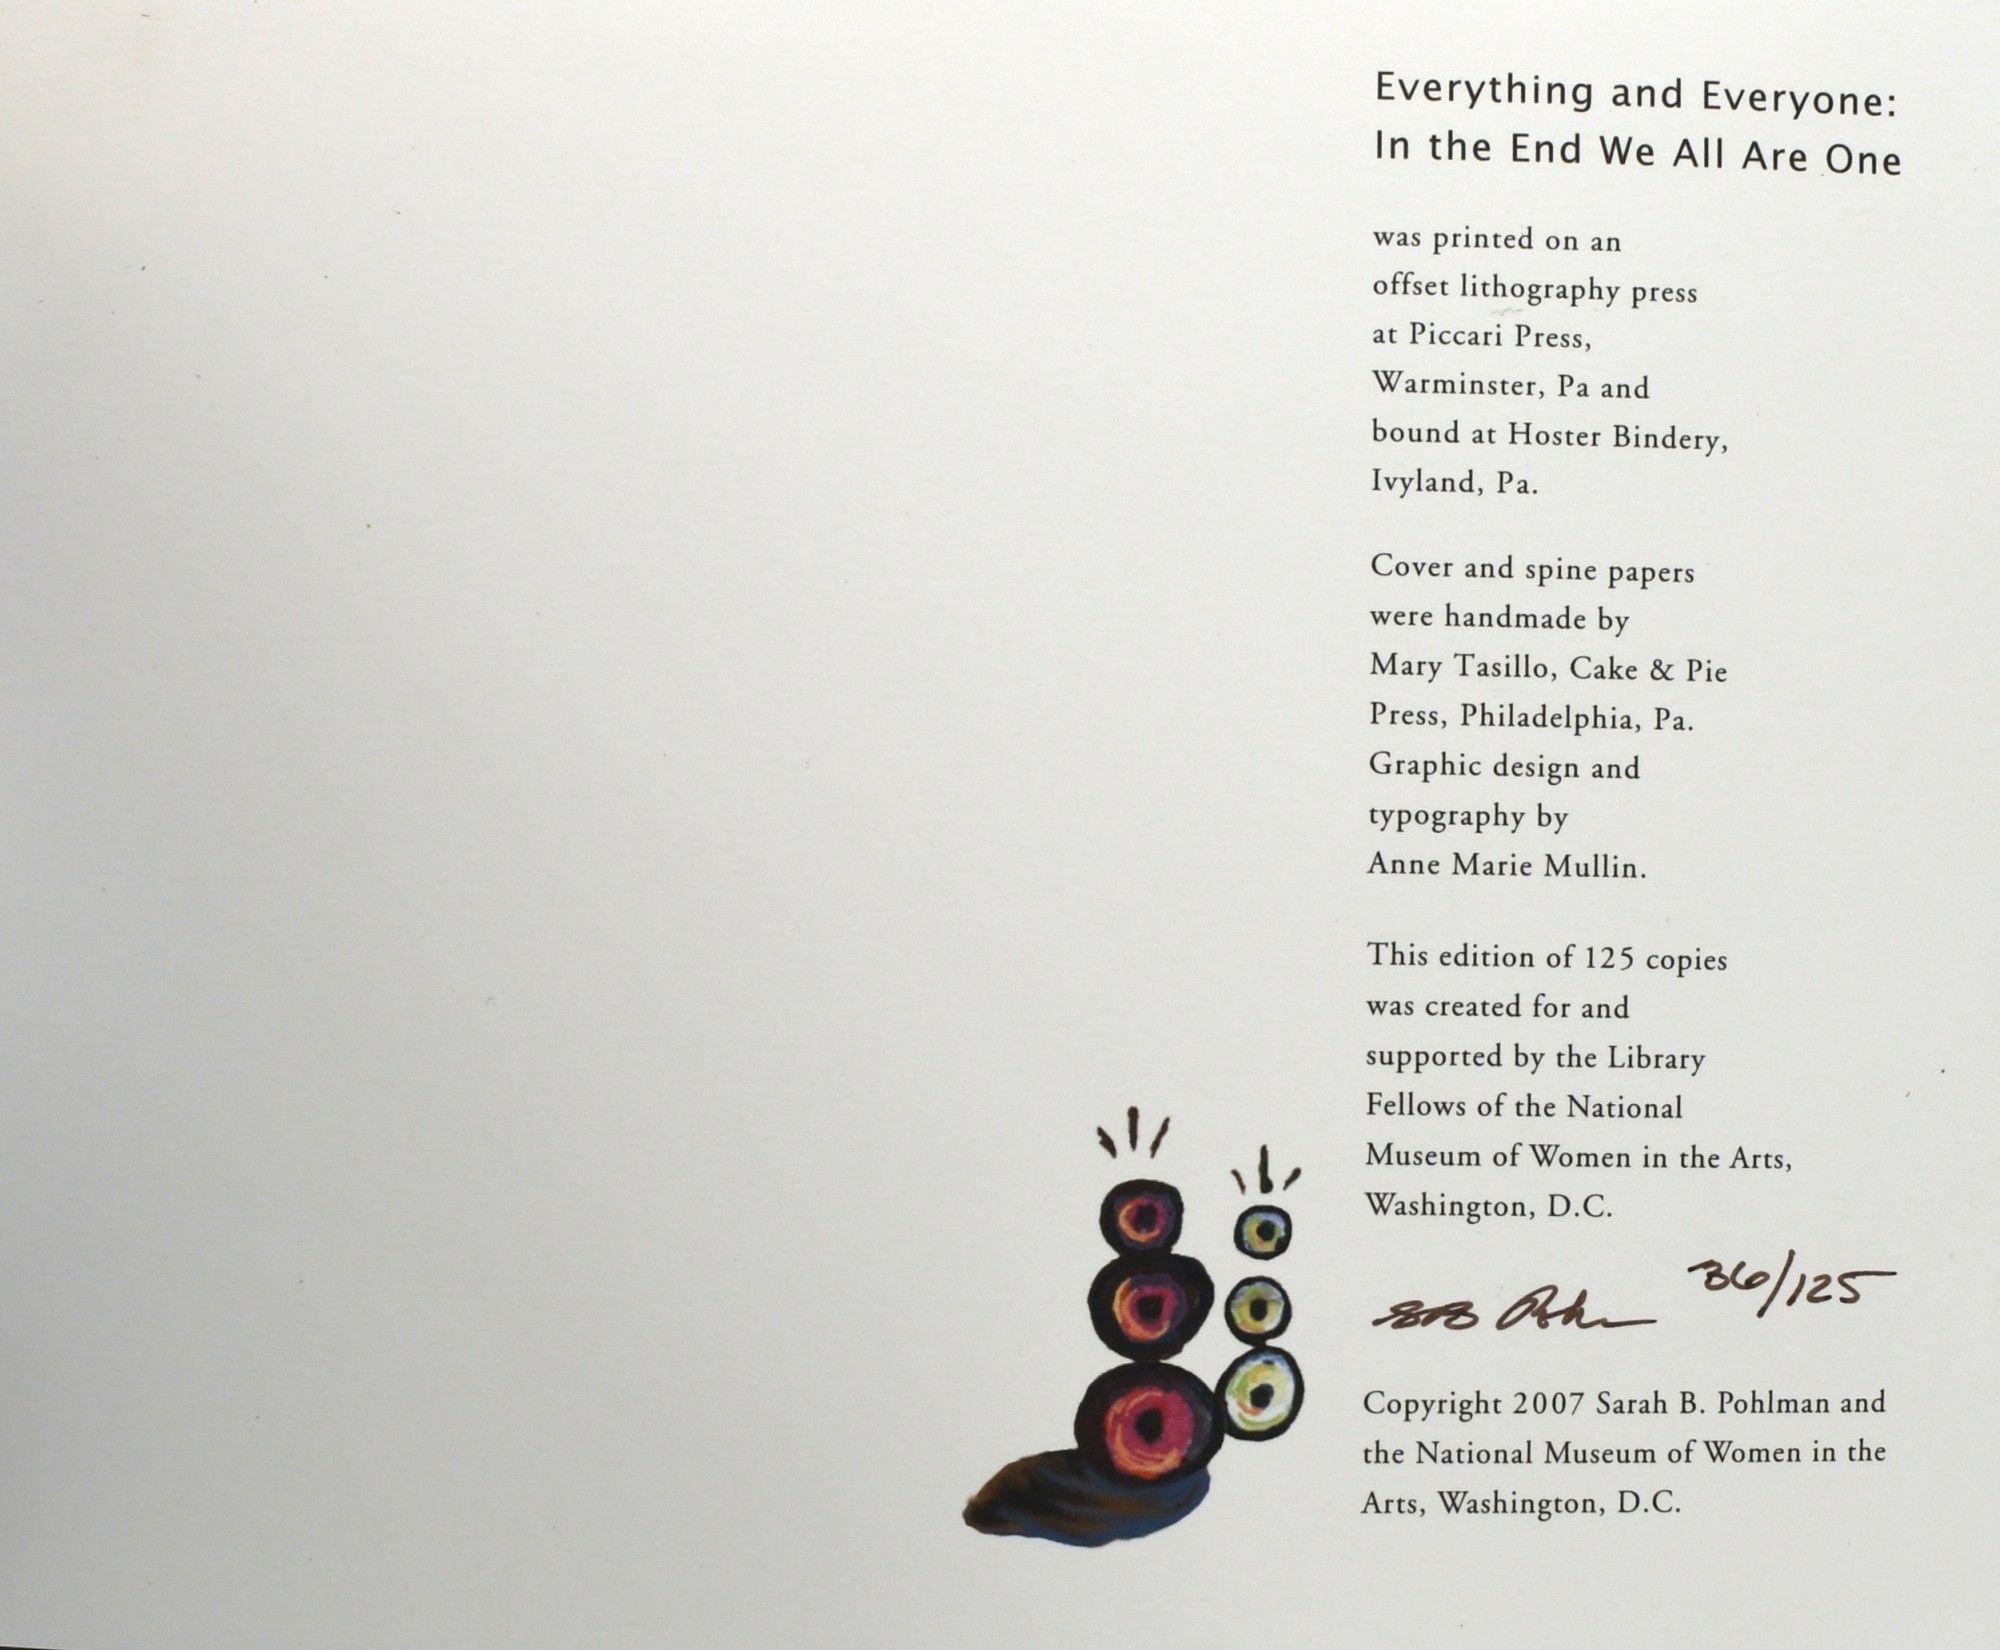 Everything and Everyone:
In the End We All Are One
was printed on an
offset lithography press
at Piccari Press,
Warminster, Pa and
bound at Hoster Bindery,
Ivyland, Pa.
Cover and spine papers
were handmade by
Mary Tasillo, Cake & Pie
Press, Philadelphia, Pa.
Graphic design and
typography by
Anne Marie Mullin.
This edition of 125 copies
was created for and
supported by the Library
Fellows of the National
Museum of Women in the Arts,
Washington, D.C.
36/125
Copyright 2007 Sarah B. Pohlman and
the National Museum of Women in the
Arts, Washington, D.C.